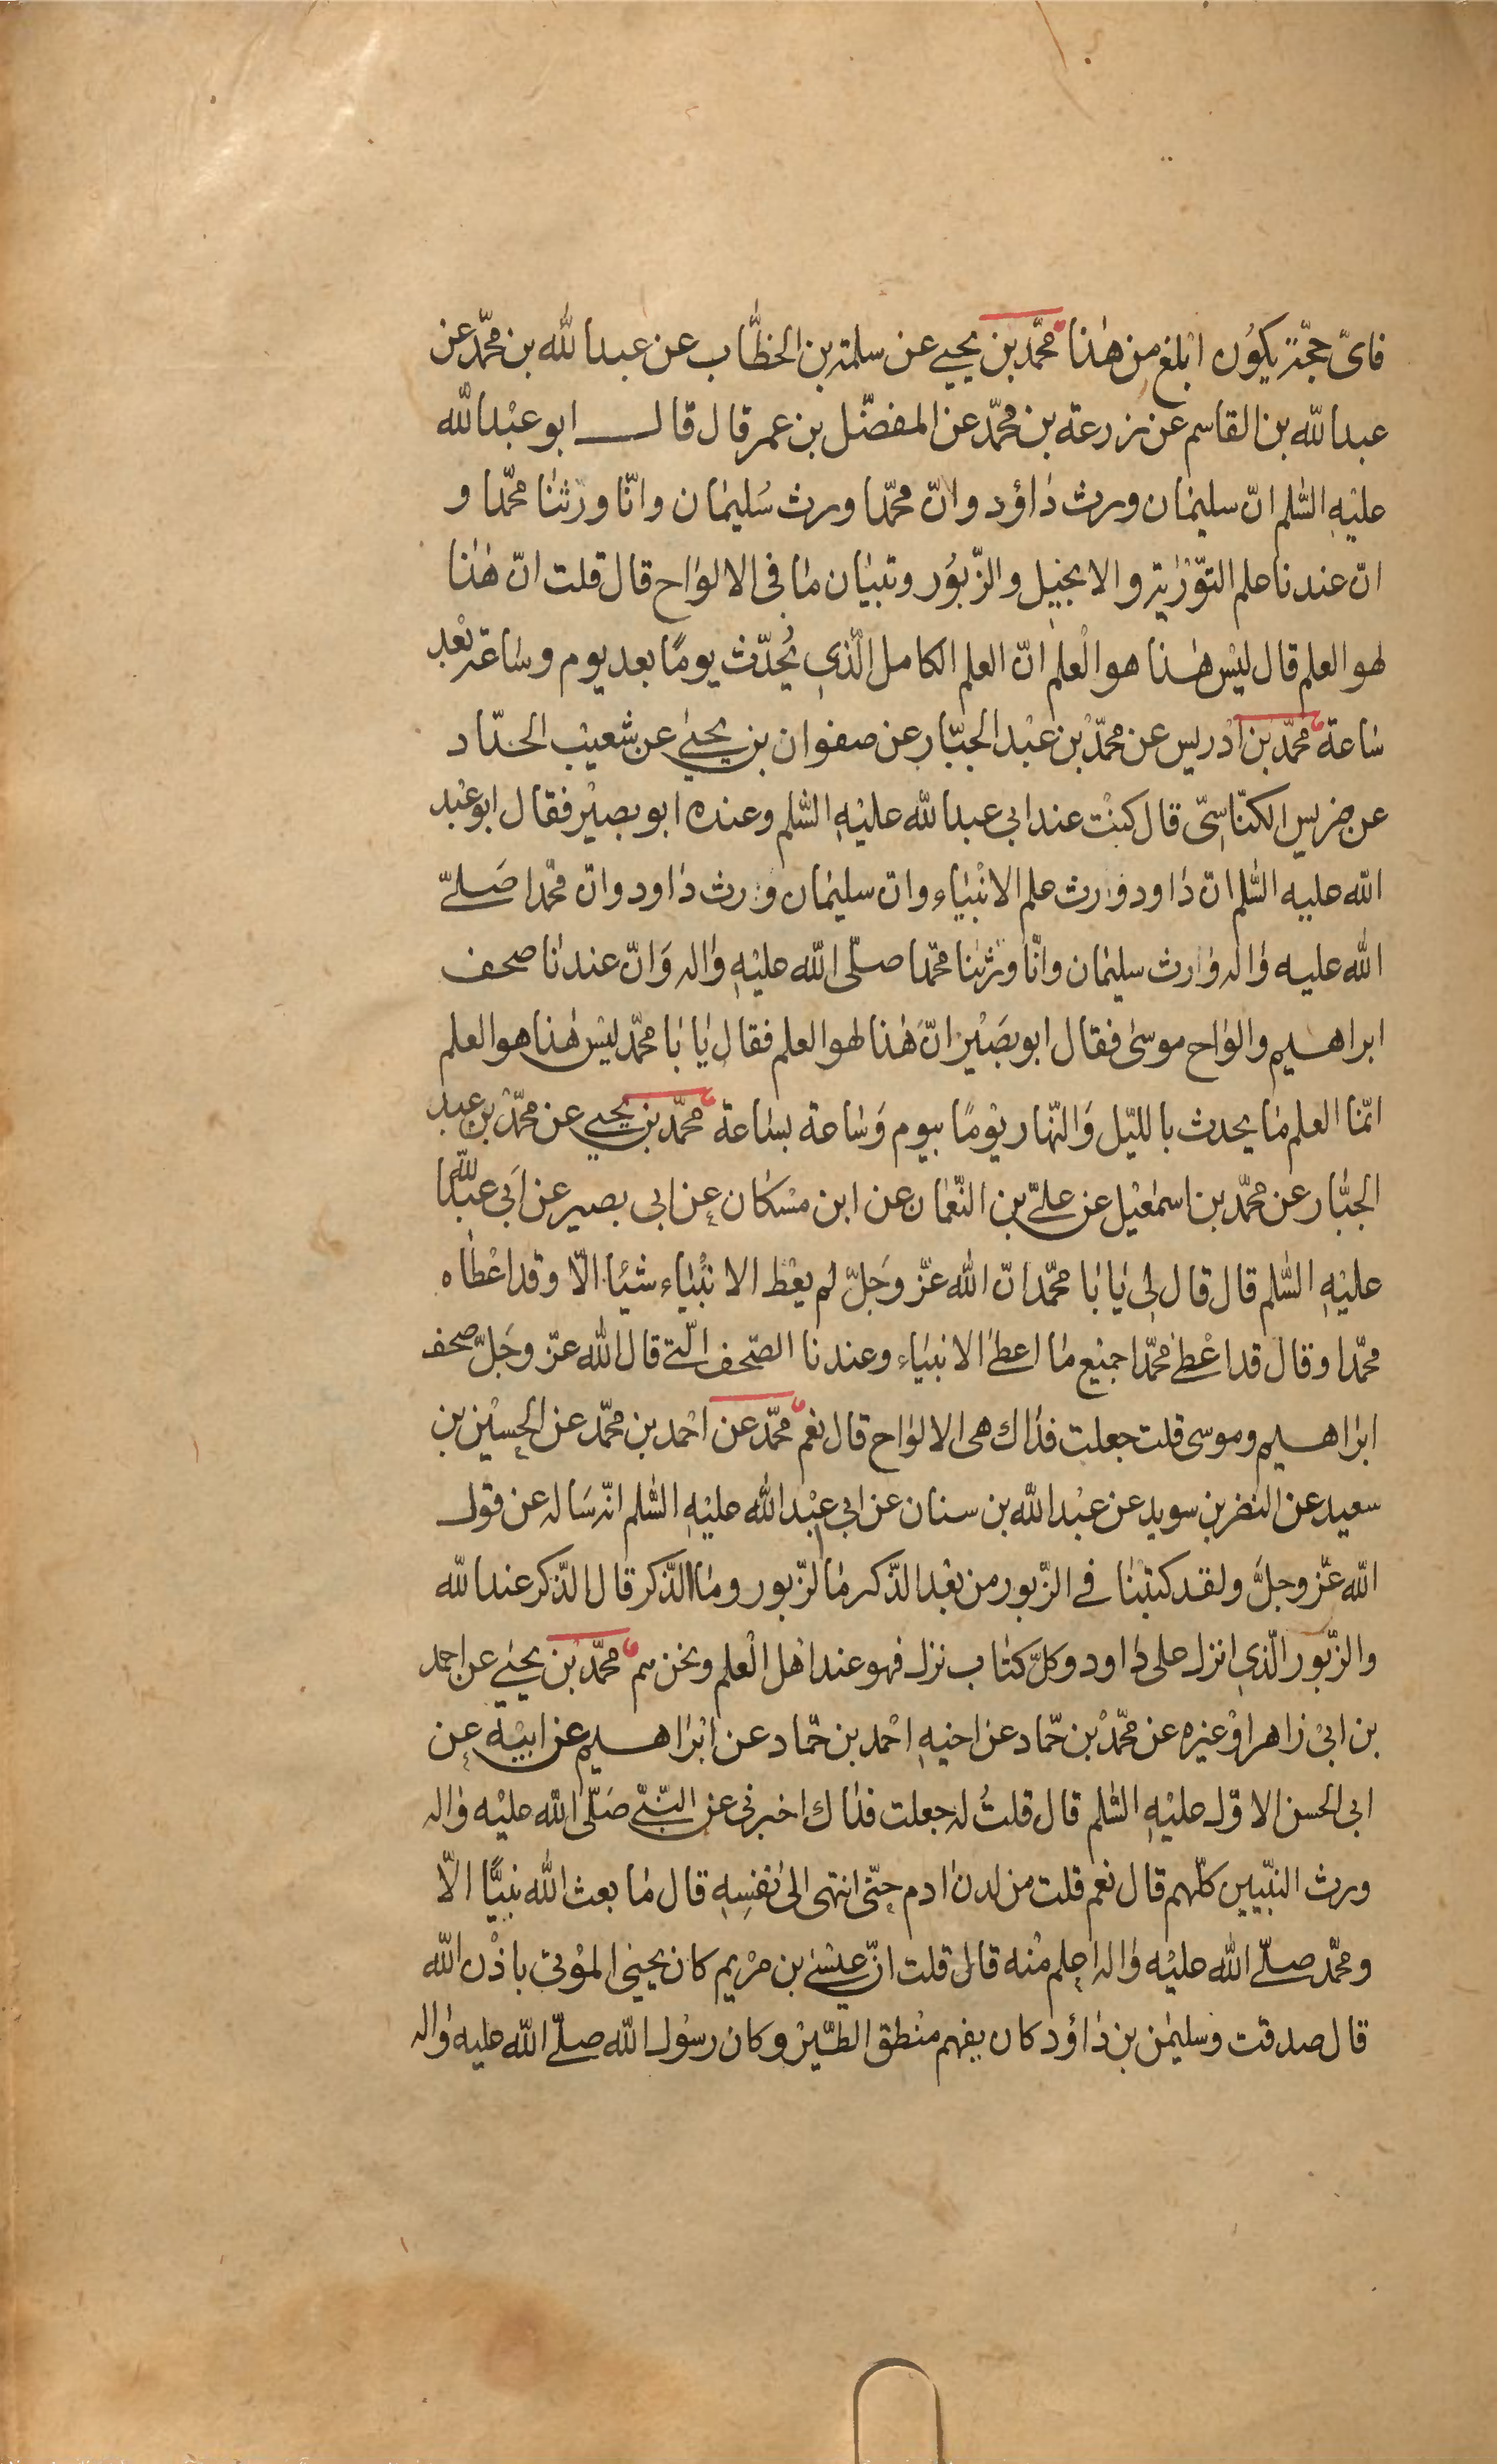 فاىّ حجّة يكوُن ابلغ من هٰذا محمّد بن يحيى عن سلمة بن الخطّاب عن عبدالله بن محمّد عن
عبدالله بن القاسم عن زرعة بن محمّد عن المفضّل بن عمر قال قال ابو عبْدالله
عليْهِ السّلم انّ سليمٰان ورث دٰاؤد وانّ محمّدا ورث سُليمٰان وانّا ورثنٰا محمّدا و
انّ عندنا علم التوّرٰية والانجيل والزّبوُر وتبيٰان مٰا فى الالوٰاح قال قلت انّ هٰذا
لهو العلم قال ليْس هٰذا هو الْعلم انّ العلم الكامل الّذي يُحدّث يومًا بعد يوم وسٰاعة بعْد
سٰاعة محمّد بن ادْريس عن محمّدْ بن عبْد الجبّار عن صفوان بن يحيىٰ عن شعيْب الحدّاد
عن ضريس الكنّاسِىّ قال كنْت عند ابي عبدالله عليْهِ السّلم وعنده ابو بصيْر فقال ابو عبْد
الله عليه السّلم انّ دٰاود وٰرث علم الانْبيٰاء وانّ سليمٰان وٰرث دٰاود وانّ محّمْدا صَلّى
الله عليه وٰاله وٰارث سليمٰان وانّا ورْثنا محّمدا صلّى الله عليْهِ وٰاله وَانّ عندنٰا صحف
ابراهيم والوٰاح موسىٰ فقال ابو بصَيْر انّ هٰذا لهو العلم فقال يٰا بٰا محمّد ليْس هٰذا هو العلم
انّمٰا العلم مٰا يحدث باللّيل وَالنّهٰار يوْمًا بيوم وَسٰاعة بسٰاعة محمّد بن يحيى عن محمّدْ بن عبد
الجبّٰار عن محمّد بن اسمٰعيْل عن علىّ بن النّعْمٰان عن ابن مسْكٰان عن ابى بصير عن اَبي عبدالله
عليْهِ السّلم قال قال لى يٰا بٰا محمّد انّ الله عزّ وجَلّ لم يعْط الانْبيٰاء شيْئا الّا وقد اعْطٰاه
محمّدا وقال قد اعْطىٰ محمّدا جميْع مٰا اعطىٰ الانبيٰاء وعندنا الصّحف الّتى قال الله عزّ وجَلّ صحف
ابرٰاهيم وموسى قلت جعلت فدٰاك هى الالوٰاح قال نعم محمّد عن احْمد بن محمّد عن الحسيْن بن
سعيد عن النضر بن سويد عن عبْدالله بن سنان عن ابي عبْدالله عليْهِ السّلم انّه سَاله عن قول
الله عزّ وجلّ ولقد كتبْنٰا فى الزّبور من بعْد الذّكر مٰا لزّبور ومٰا الذّكر قال الذّكر عندالله
والزّبور الّذي انزل على دٰاود وكلّ كتٰاب نزل فهو عند اهْل الْعلم ونحن هم محمّد بْن يحيىٰ عن احمد
بن ابىْ زٰاهر اوْ غيْره عن محمّدْ بن حمّاد عن اخيْهِ احْمد بن حمّاد عن ابْرٰاهيم عن ابيْه عن
ابى الحسن الاوّل عليْهِ السّلم قال قلتُ له جعلت فدٰاك اخبرنى عن النّبىّ صَلّى الله عليْه وٰاله
ورث النّبيين كلّهم قال نعم قلت من لدن ادم حتّى انتهى الىٰ نفْسِهِ قال مٰا بعث الله نبيًّا الّا
ومحمّد صلّى الله عليْه وٰاله اعلم منْه قال قلت انّ عيْسى بن مرْيم كان يحيى الموْتى باذْن الله
قال صدقت وسليمٰن بن دٰاؤد كان يفهم منْطق الطّيْر وكان رسوْل الله صلّى الله عليه وٰاله